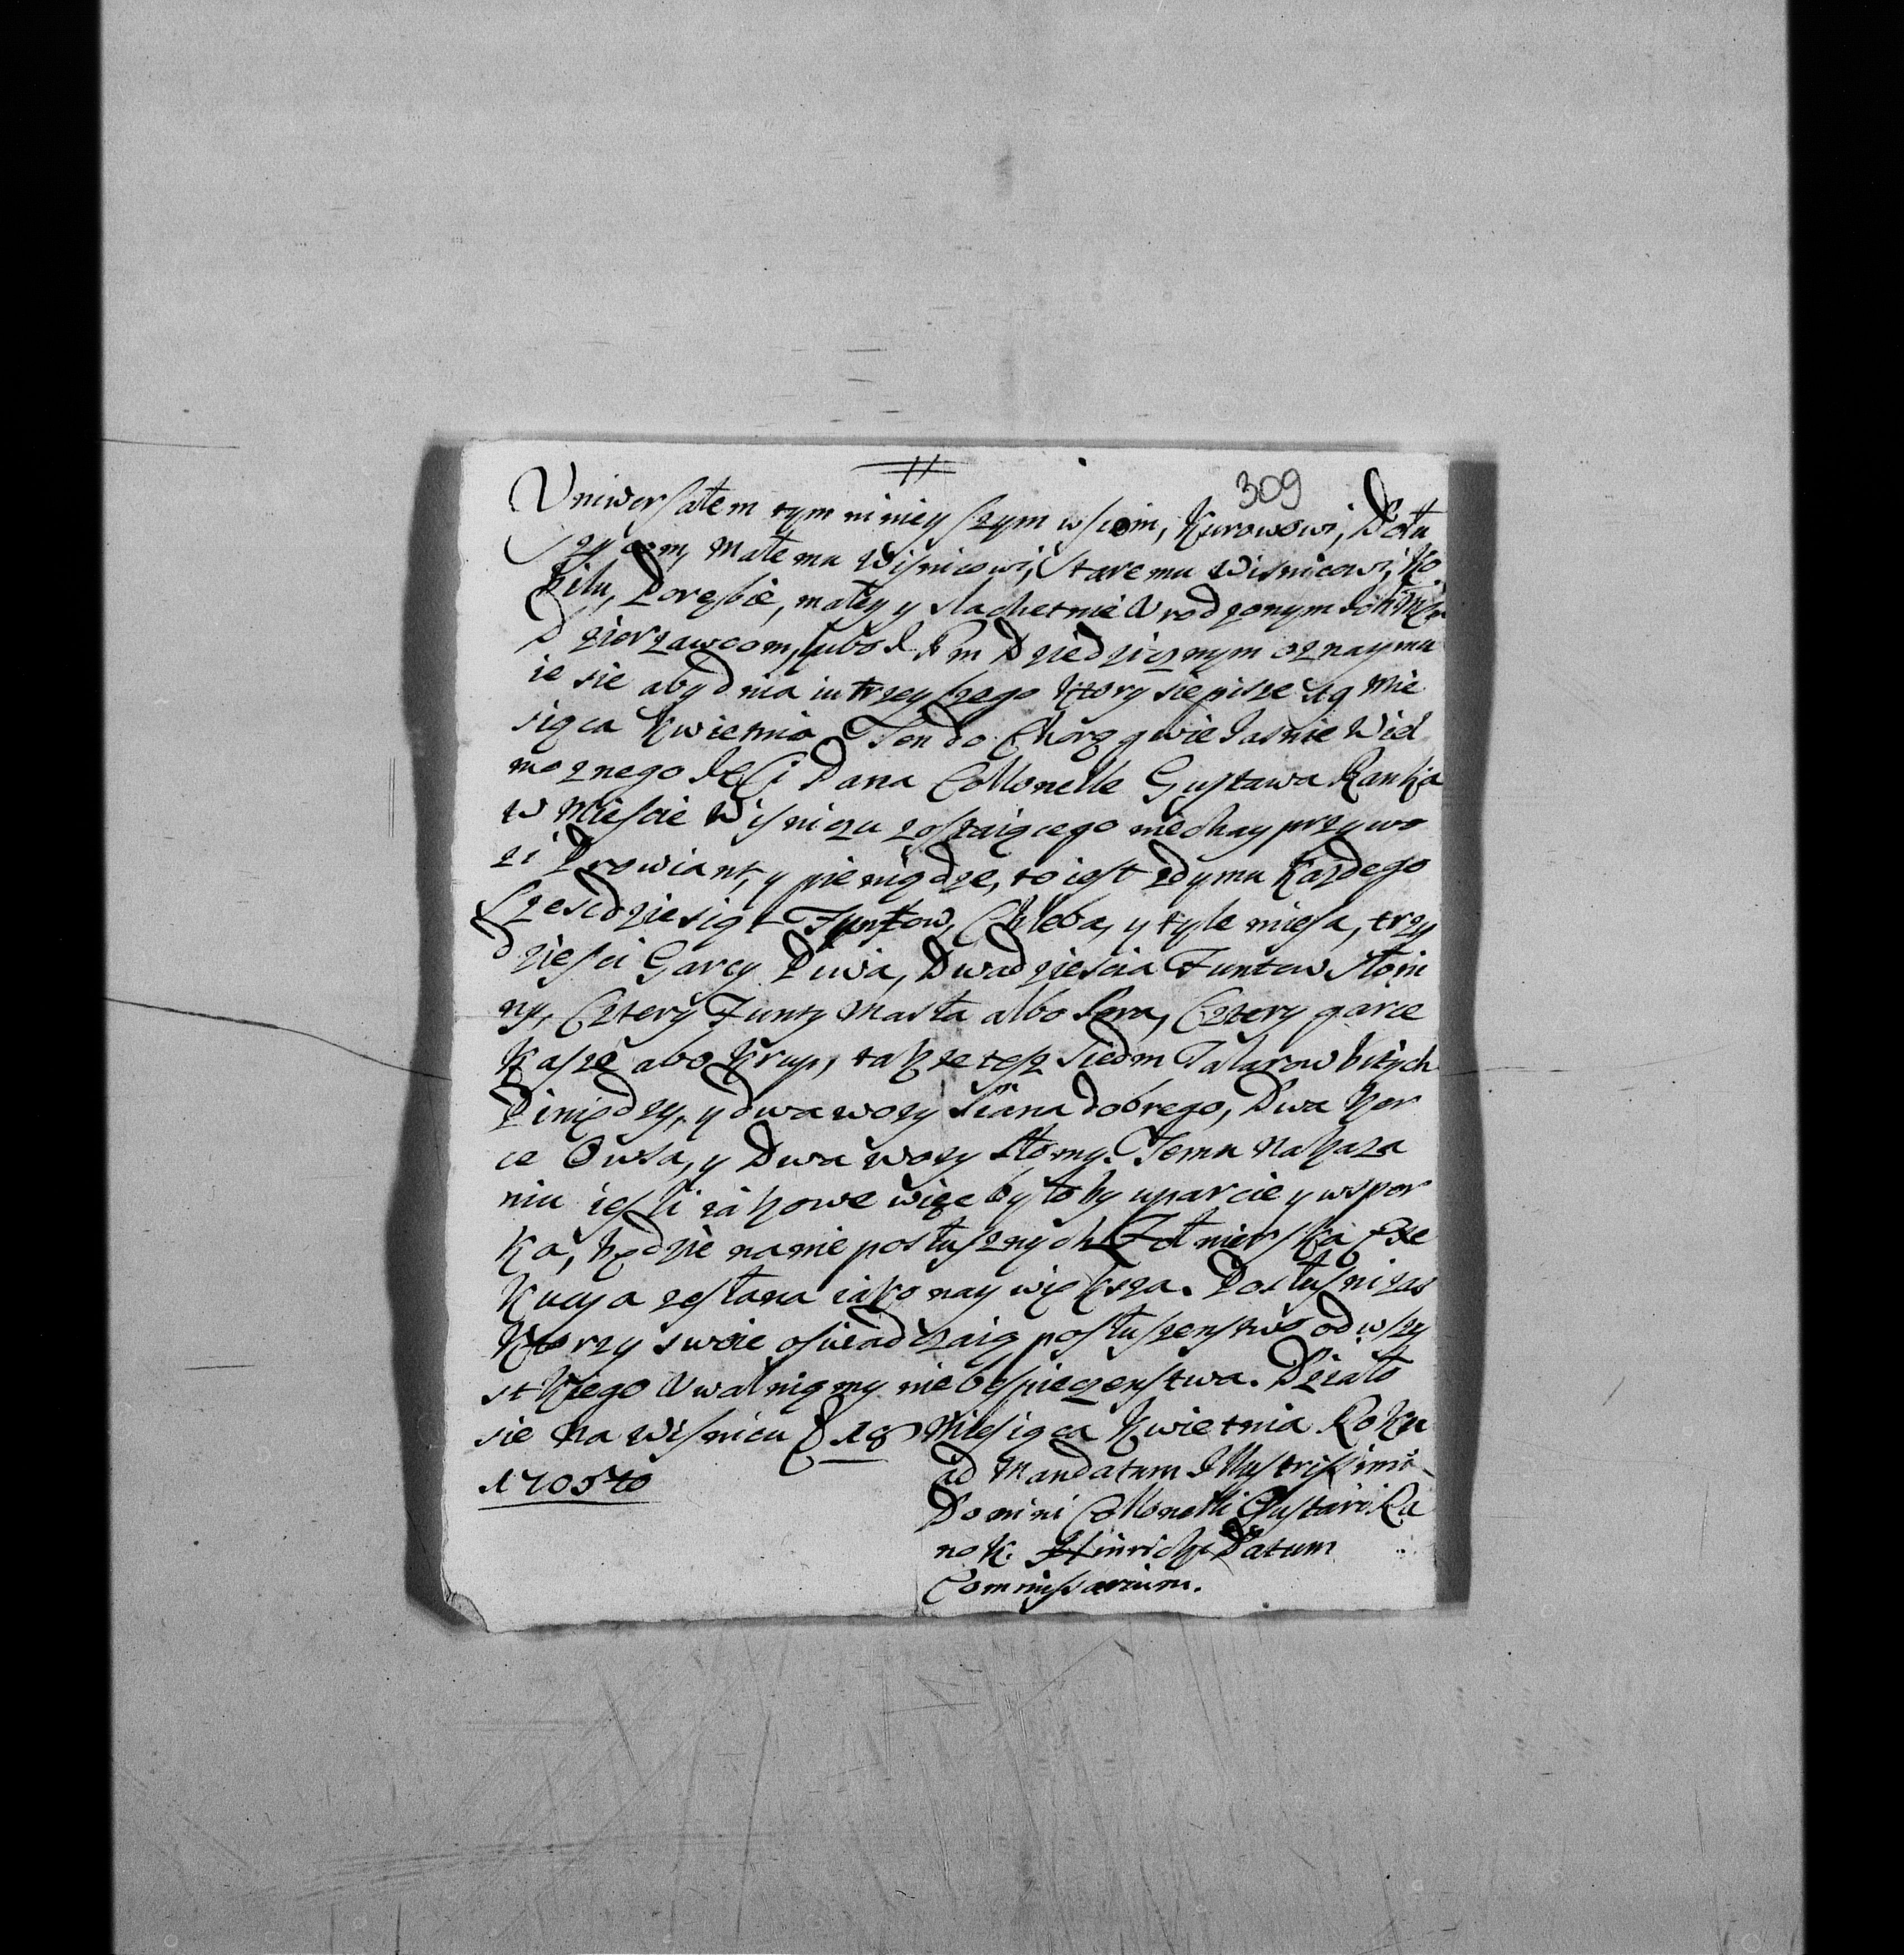 309
Uniwersałem tym ninieyszym wsiom, Kurowowi, Połu
szycom, Małemu Wisnicowi, Staremu Wisnicowi, Ko
bilu, Porębie, małey y slachetnie Urodzonym
Dzierzawcom, lubo Dziedzicznym oznaymu
ie sie aby dnia iutrzeyszego ktory sie pisze 19 Mie
siąca Kwietnia Ten do Chorągwie Jasnie Wiel
moznego Pana Collonelle Gustawa Ranka
w Miescie Wisniczu zostaiącego niechay przywo
zi Prowiant, y pieniądze, to iest zdymu kazdego
Szescdziesiąt Funtow, Chleba, y tyle miesa, trzy
dziesci Garcy Piwa, Dwadziescia Funtow Słoni
ny, Cztery Funty Masła albo Sera, Cztery garce
Kasze abo Krup, takze tesz Siedm Talarow bitych
Piniędzy, y dwa wozy Siana dobrego, Dwa Kor
ce Owsa, y Dwa wozy Słomy. Temu Nakaza
niu iesli iakowe więc byłoby uparcie y wspor
ka, będzie na nie posłusznych Zołnierska Exe
kucya zesłana iako naywiększa. Posłuszni zas
Ktorzy swoie osiwiadczaią posłuszenstwo od wszy
stkiego Uwalniamy niebespieczenstwa. Działo
sie Na Wisnicu 18 Miesiąca Kwietnia Roku
ad Mandatum Illustrissimi
Domini Collonelli Gustavi Ra
nek. Hinrich Datum
Commissarium.